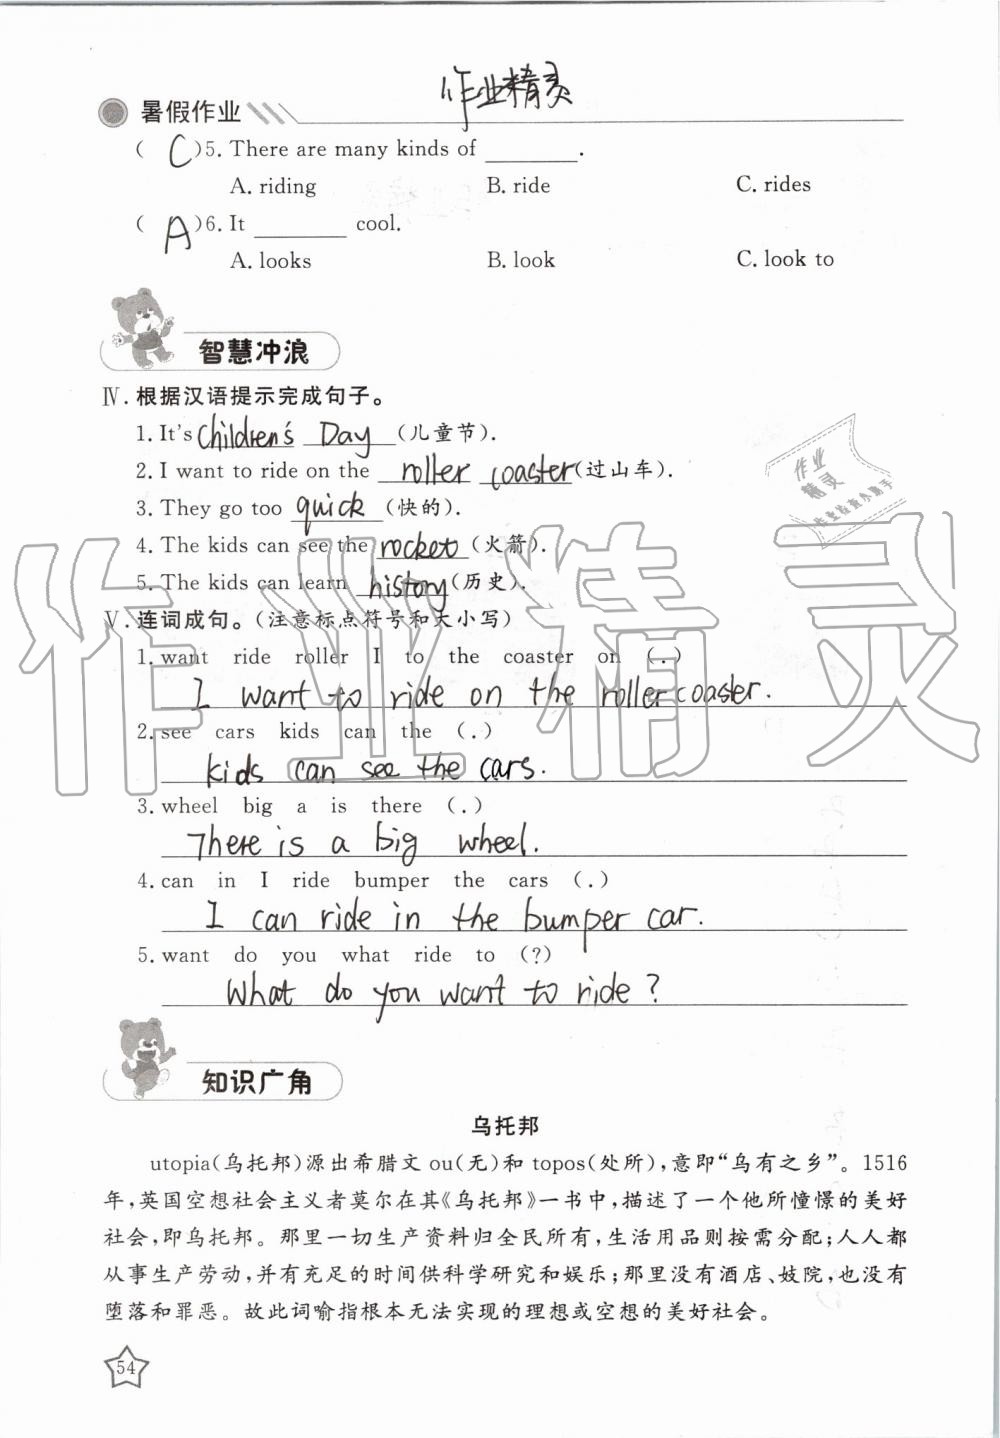 作业精灵
暑假作业
( C )5. There are many kinds of ________.
A. riding B. ride C. rides
( A )6. It ________ cool.
A. looks B. look C. look to
智慧冲浪
Ⅳ. 根据汉语提示完成句子。
1. It's Children's Day (儿童节).
2. I want to ride on the roller coaster (过山车).
3. They go too quick (快的).
4. The kids can see the rocket (火箭).
5. The kids can learn history (历史).
Ⅴ. 连词成句。(注意标点符号和大小写)
1. want ride roller I to the coaster on (.)
I want to ride on the roller coaster.
2. see cars kids can the (.)
kids can see the cars.
3. wheel big a is there (.)
There is a big wheel.
4. can in I ride bumper the cars (.)
I can ride in the bumper car.
5. want do you what ride to (?)
What do you want to ride?
知识广角
乌托邦
utopia(乌托邦)源出希腊文 ou(无)和 topos(处所),意即“乌有之乡”。1516
年,英国空想社会主义者莫尔在其《乌托邦》一书中,描述了一个他所憧憬的美好
社会,即乌托邦。那里一切生产资料归全民所有,生活用品则按需分配;人人都
从事生产劳动,并有充足的时间供科学研究和娱乐;那里没有酒店、妓院,也没有
堕落和罪恶。故此词喻指根本无法实现的理想或空想的美好社会。
54
作业精灵
作业
精灵